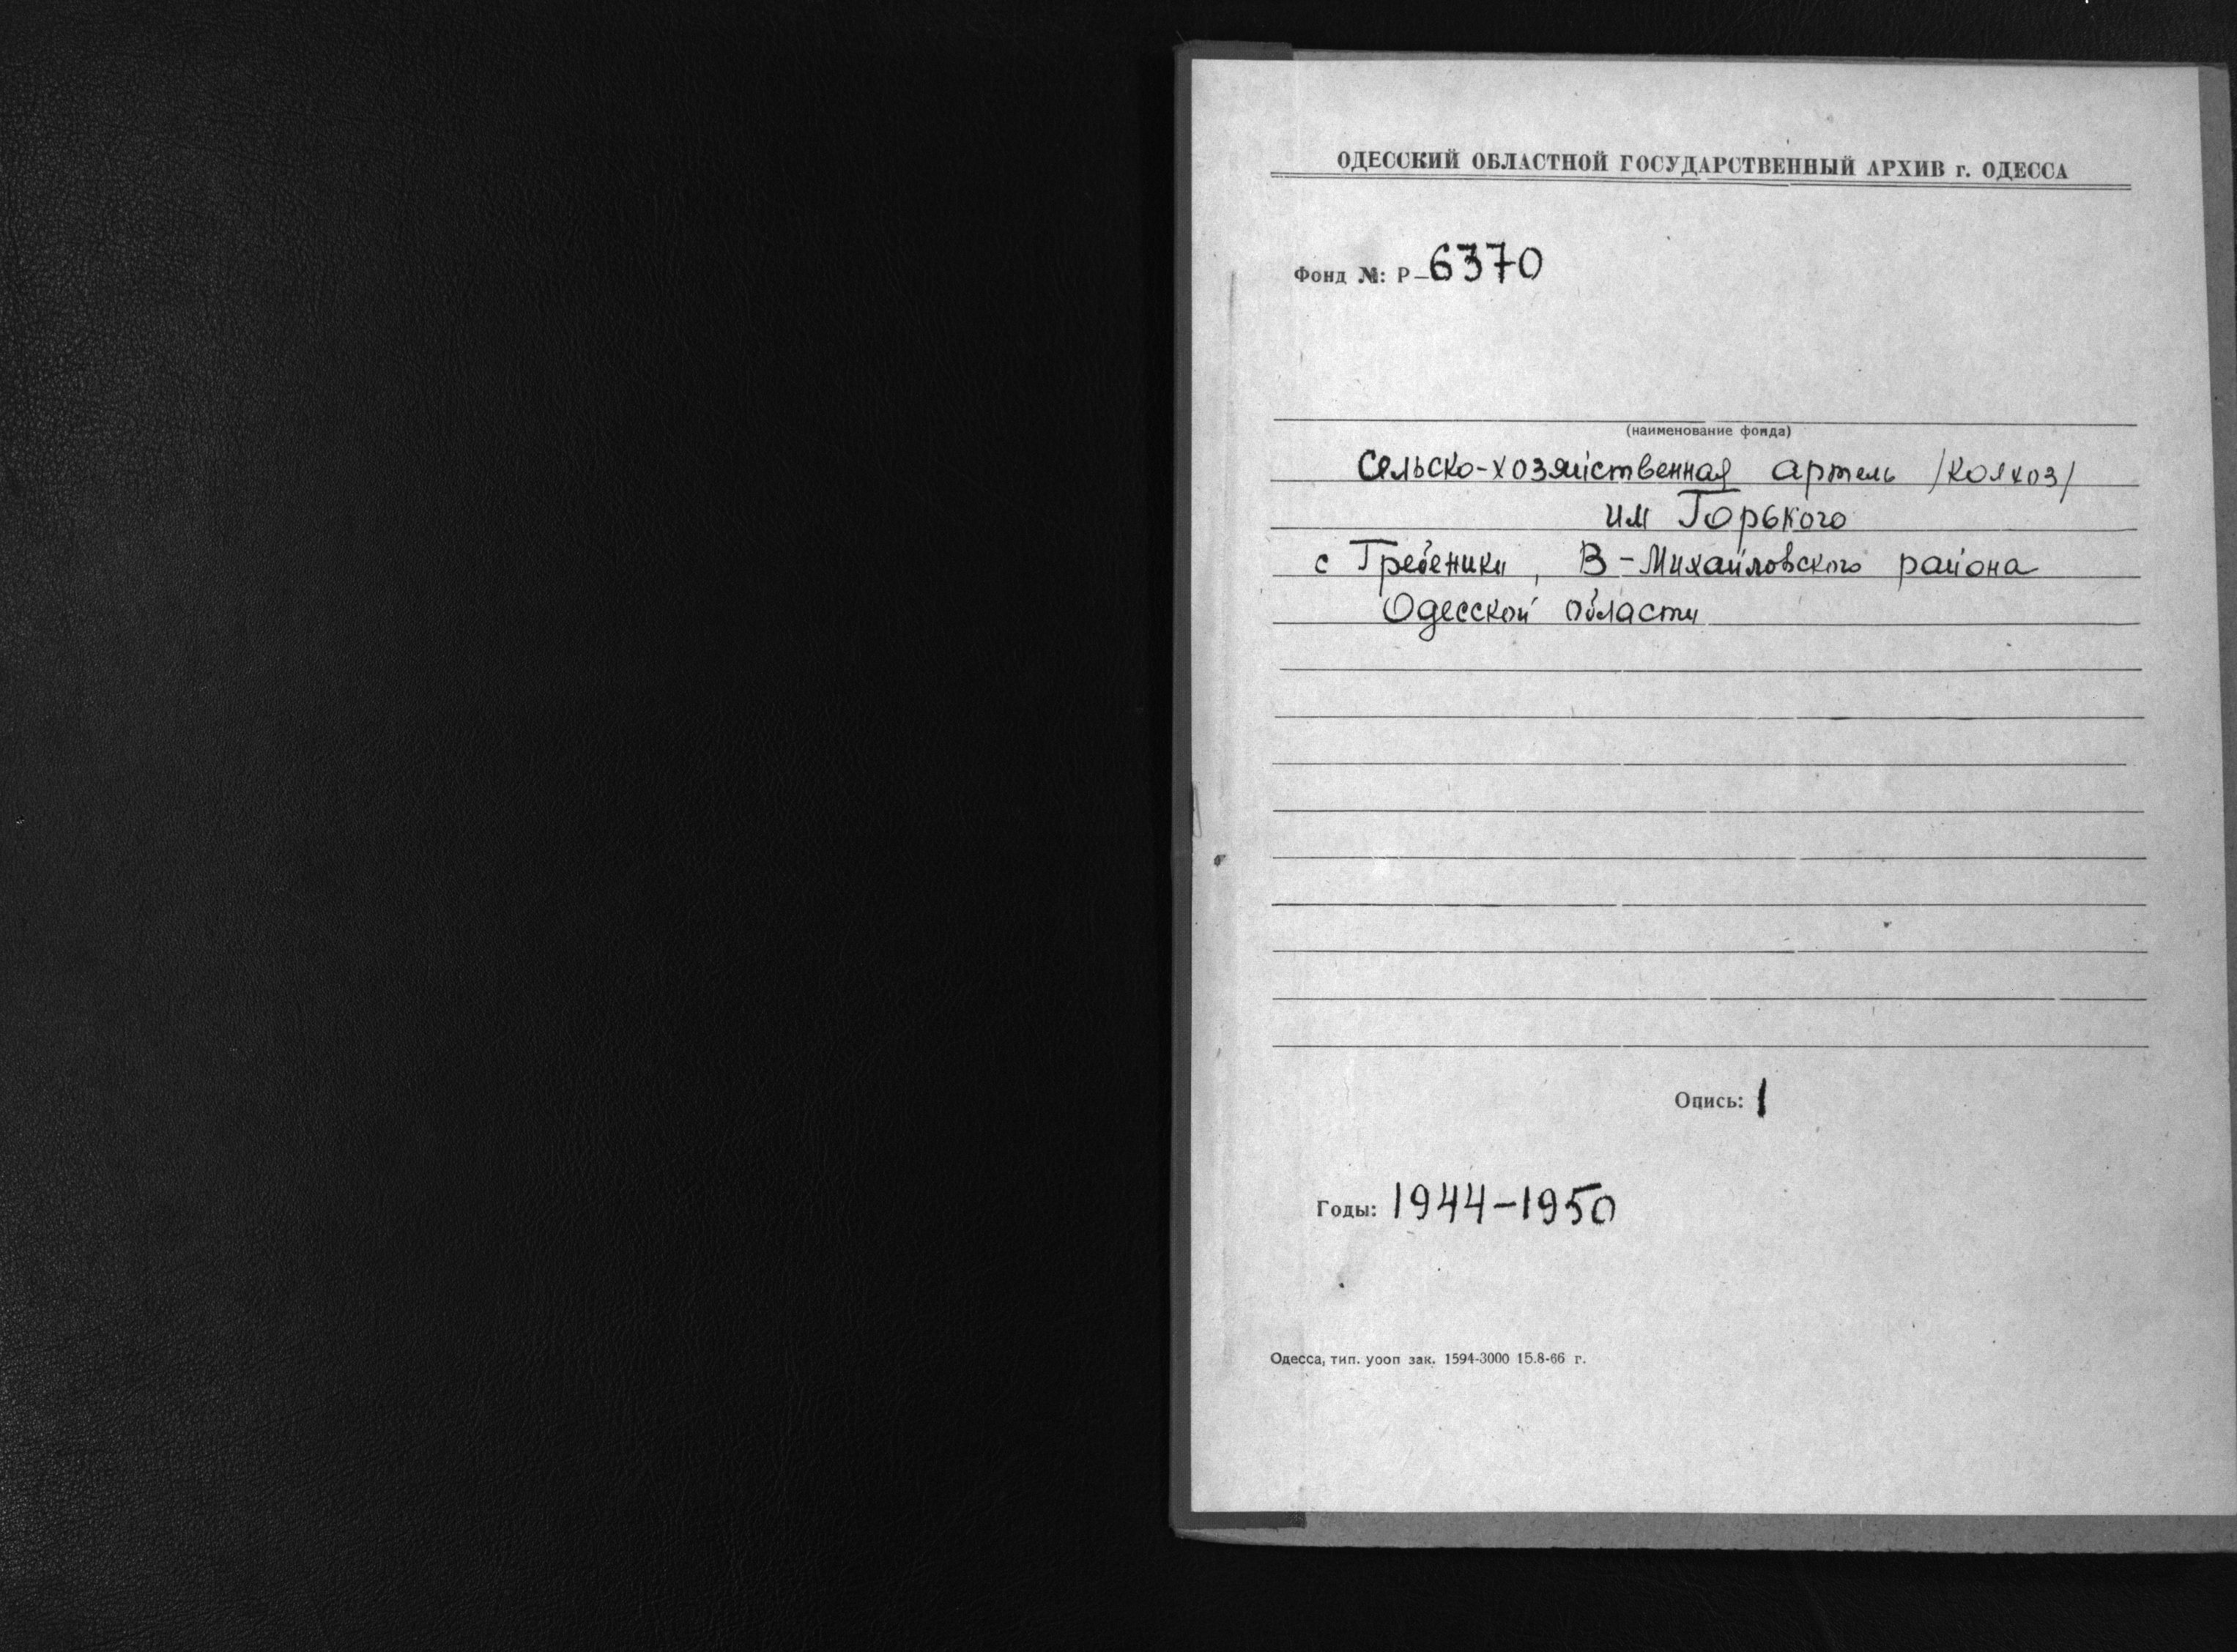 ОДЕССКИЙ ОБЛАСТНОЙ ГОСУДАРСТВЕННЫЙ АРХИВ г. ОДЕССА
Фонд №: Р-6370
(наименование фонда)
Сельско-хозяйственная артель /колхоз/
им Горького
с Гребеники, В-Михайловского района
Одесской области
Опись: 1
Годы: 1944-1950
Одесса, тип. уооп зак. 1594-3000 15.8-66 г.